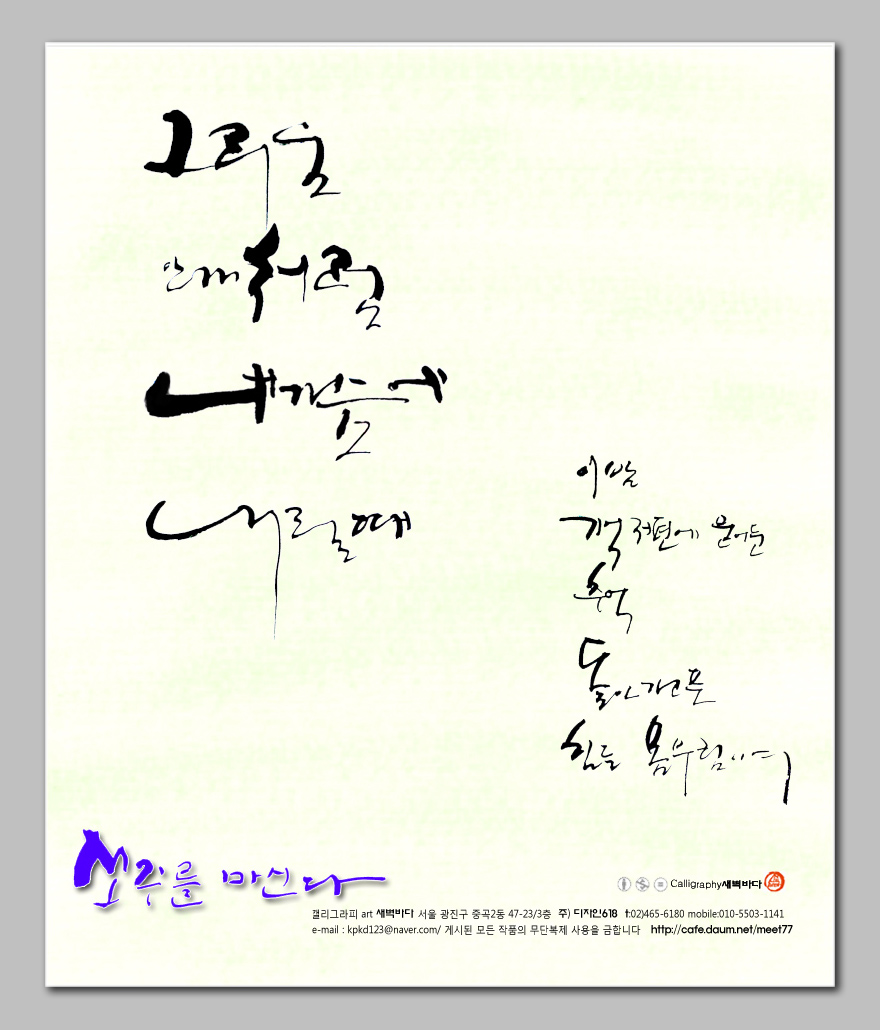 그리움
안개처럼
내가슴에
내릴때
이밤
저편에 묻어둔
추억
돌아가고픈
힘든 몸부림이여
소주를 마신다
Calligraphy새벽바다
캘리그라피 art 새벽바다 서울 광진구 중곡2동 47-23/3층 주) 디자인618 t:02)465-6180 mobile:010-5503-1141
e-mail : kpkd123@naver.com/ 게시된 모든 작품의 무단복제 사용을 금합니다 http://cafe.daum.net/meet77